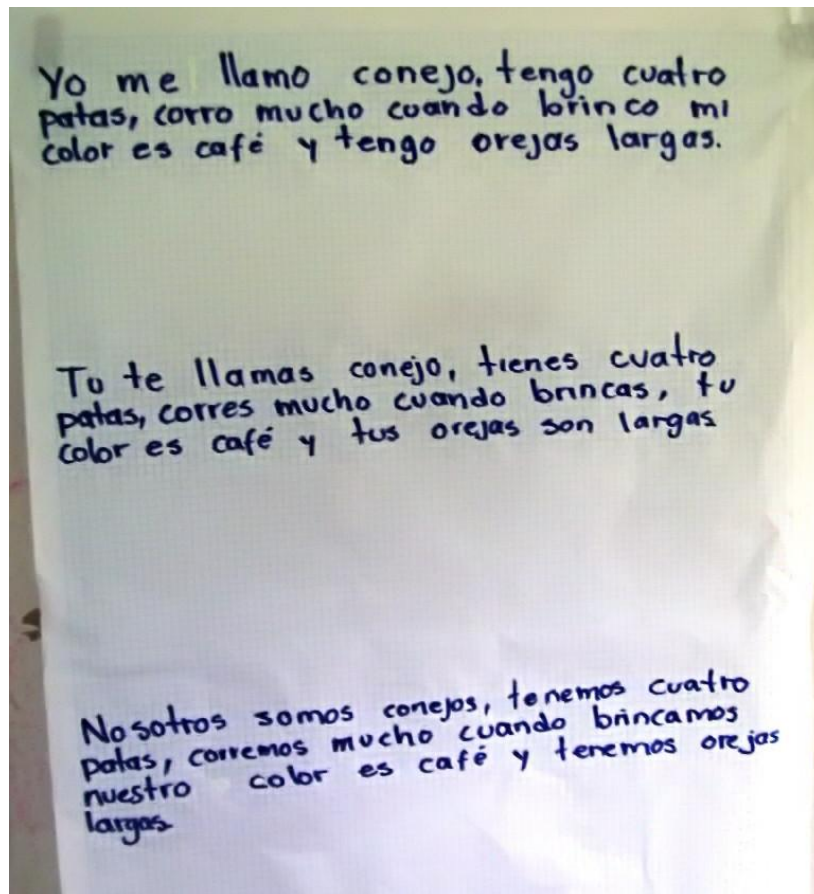 Yo me llamo conejo, tengo cuatro
patas, corro mucho cuando brinco mi
color es café y tengo orejas largas.
Tu te llamas conejo, tienes cuatro
patas, corres mucho cuando brincas, tu
color es café y tus orejas son largas
Nosotros somos conejos, tenemos cuatro
patas, corremos mucho cuando brincamos
nuestro color es café y tenemos orejas
largas